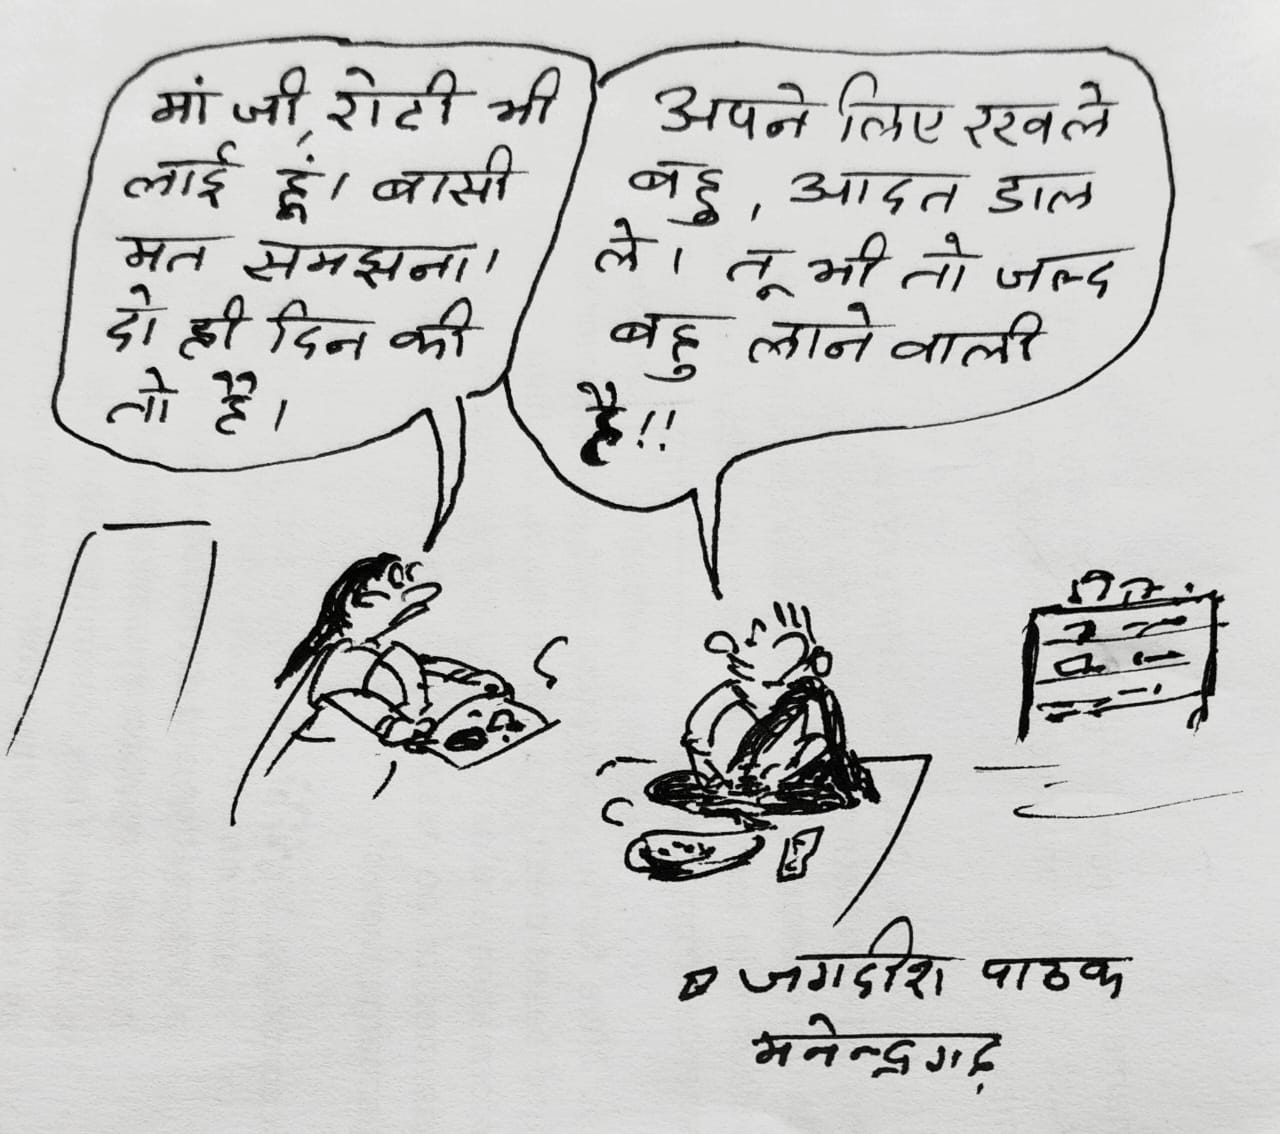 मां जी, रोटी भी
लाई हूं। बासी
मत समझना।
दो ही दिन की
तो है।
अपने लिए रखले
बहु, आदत डाल
ले। तू भी तो जल्द
बहु लाने वाली
है!!
जगदीश पाठक
मनेन्द्रगढ़